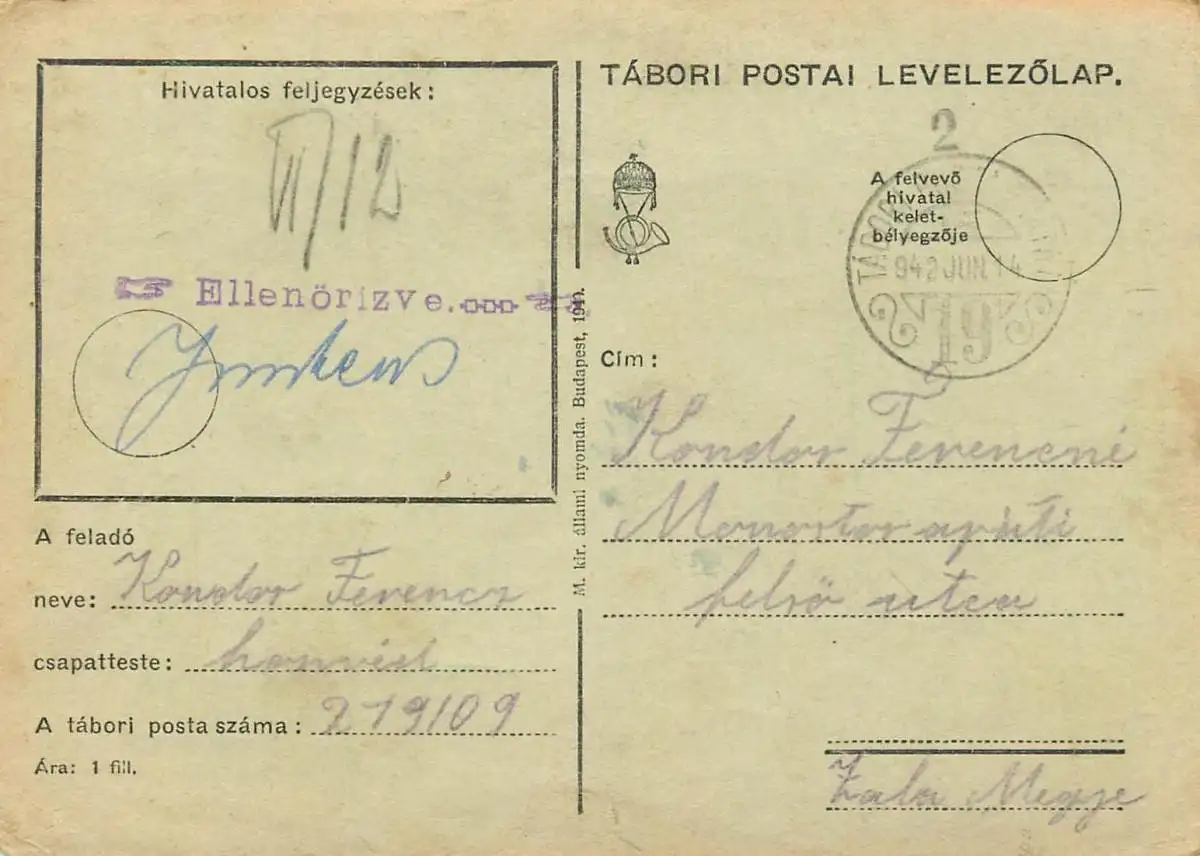 Hivatalos feljegyzések:
VI/12
Ellenőrizve.
A feladó
neve: Kondor Ferencz
csapatteste: honvéd
A tábori posta száma: 219/09
Ára: 1 fill.
M. kir. állami nyomda. Budapest, 1940.
TÁBORI POSTAI LEVELEZŐLAP.
2
A felvevő
hivatal
kelet-
bélyegzője
942 JUN 14
19
Cím:
Kondor Ferencné
Monostor apáti
felső utca
Zala Megye